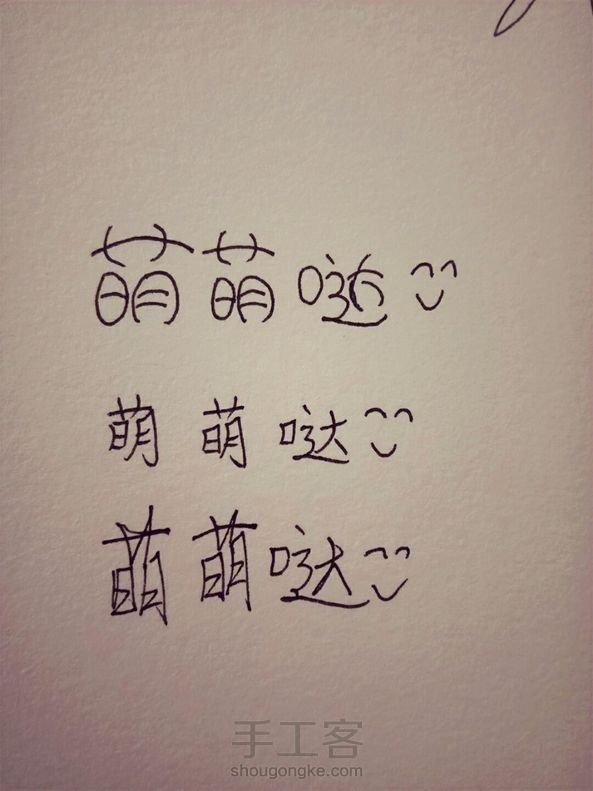 萌萌哒^^
萌萌哒^^
萌萌哒^^
手工客
shougongke.com